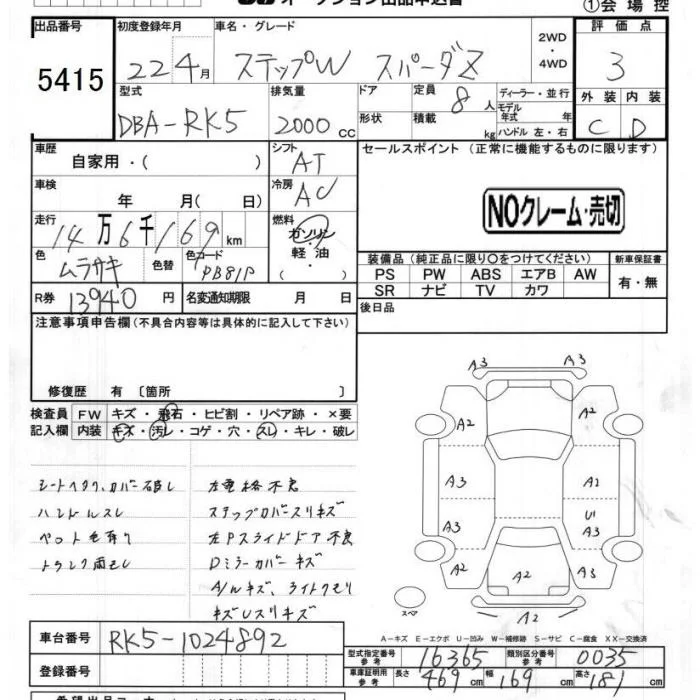 オークション出品申込書
①会場控
出品番号 5415
初度登録年月 22 4月
車名・グレード ステップW スパーダZ
2WD・4WD
評価点 3
型式 DBA-RK5
排気量 2000 cc
ドア
形状
定員 8人
積載 kg
ディーラー・並行
モデル年式 年
ハンドル 左・右
外装 内装
C D
車歴 自家用・( )
シフト AT
セールスポイント（正常に機能するものに限ります）
車検 年 月( 日)
冷房 AC
NOクレーム・売切
走行 14万6千169 km
燃料 ガソリン・軽油・( )
色 ムラサキ
色替
色コード PB81P
装備品（純正品に限り〇をつけてください）
新車保証書
PS PW ABS エアB AW
SR ナビ TV カワ
有・無
R券 13940円
名変通知期限 月 日
後日品
注意事項申告欄（不具合内容等は具体的に記入して下さい）
修復歴 有〔箇所 〕
検査員記入欄
FW キズ・飛石・ヒビ割・リペア跡・×要
内装 キズ・汚レ・コゲ・穴・スレ・キレ・破レ
シートヘタリ、カバー破レ
ハンドルスレ
ペット毛有り
トランク雨モレ
左電格不良
ステップカバースリキズ
左Pスライドドア不良
Dミラーカバーキズ
A/Wキズ、ライトクモリ
キズUスリキズ
A3 A3
A2 A2
A3 A2
A3 U1
A2 A2 A3
A2
スペア
A－キズ E－エクボ U－凹み W－補修跡 S－サビ C－腐食 XX－交換済
車台番号 RK5-1024892
型式指定番号 参考 16365
類別区分番号 参考 0035
登録番号
車庫証明用 参考 長さ 469cm 幅 169cm 高さ 181cm